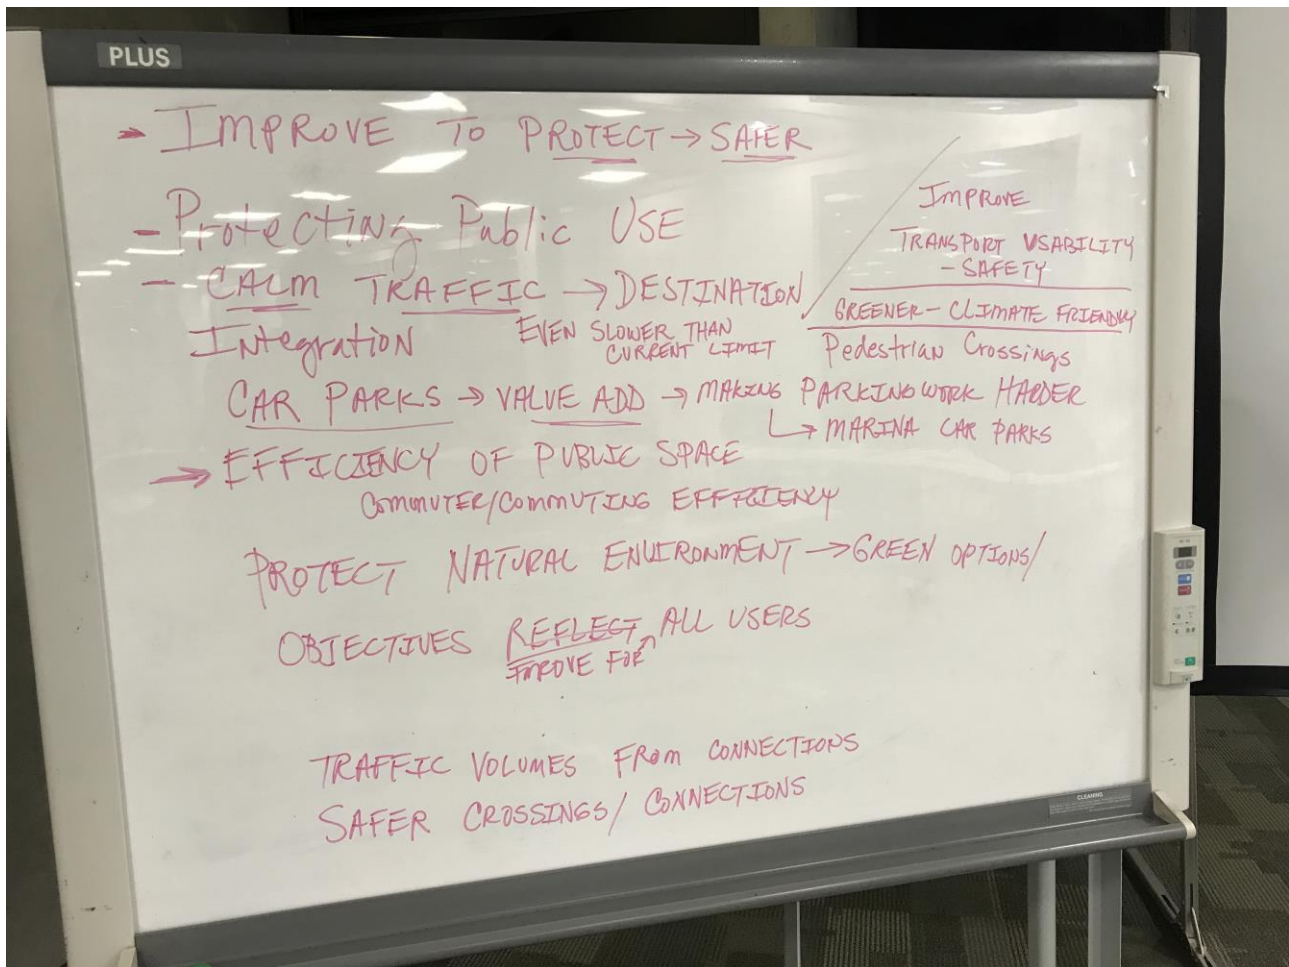 PLUS
- IMPROVE TO PROTECT → SAFER
- Protecting Public USE
- CALM TRAFFIC → DESTINATION
EVEN SLOWER THAN
CURRENT LIMIT
Integration
IMPROVE
TRANSPORT USABILITY
- SAFETY
GREENER - CLIMATE FRIENDLY
Pedestrian Crossings
CAR PARKS → VALUE ADD → MAKING PARKING WORK HARDER
→ MARINA CAR PARKS
→ EFFICIENCY OF PUBLIC SPACE
COMMUTER/COMMUTING EFFICIENCY
PROTECT NATURAL ENVIRONMENT → GREEN OPTIONS/
OBJECTIVES REFLECT ALL USERS
IMPROVE FOR
TRAFFIC VOLUMES FROM CONNECTIONS
SAFER CROSSINGS/ CONNECTIONS
CLEANING